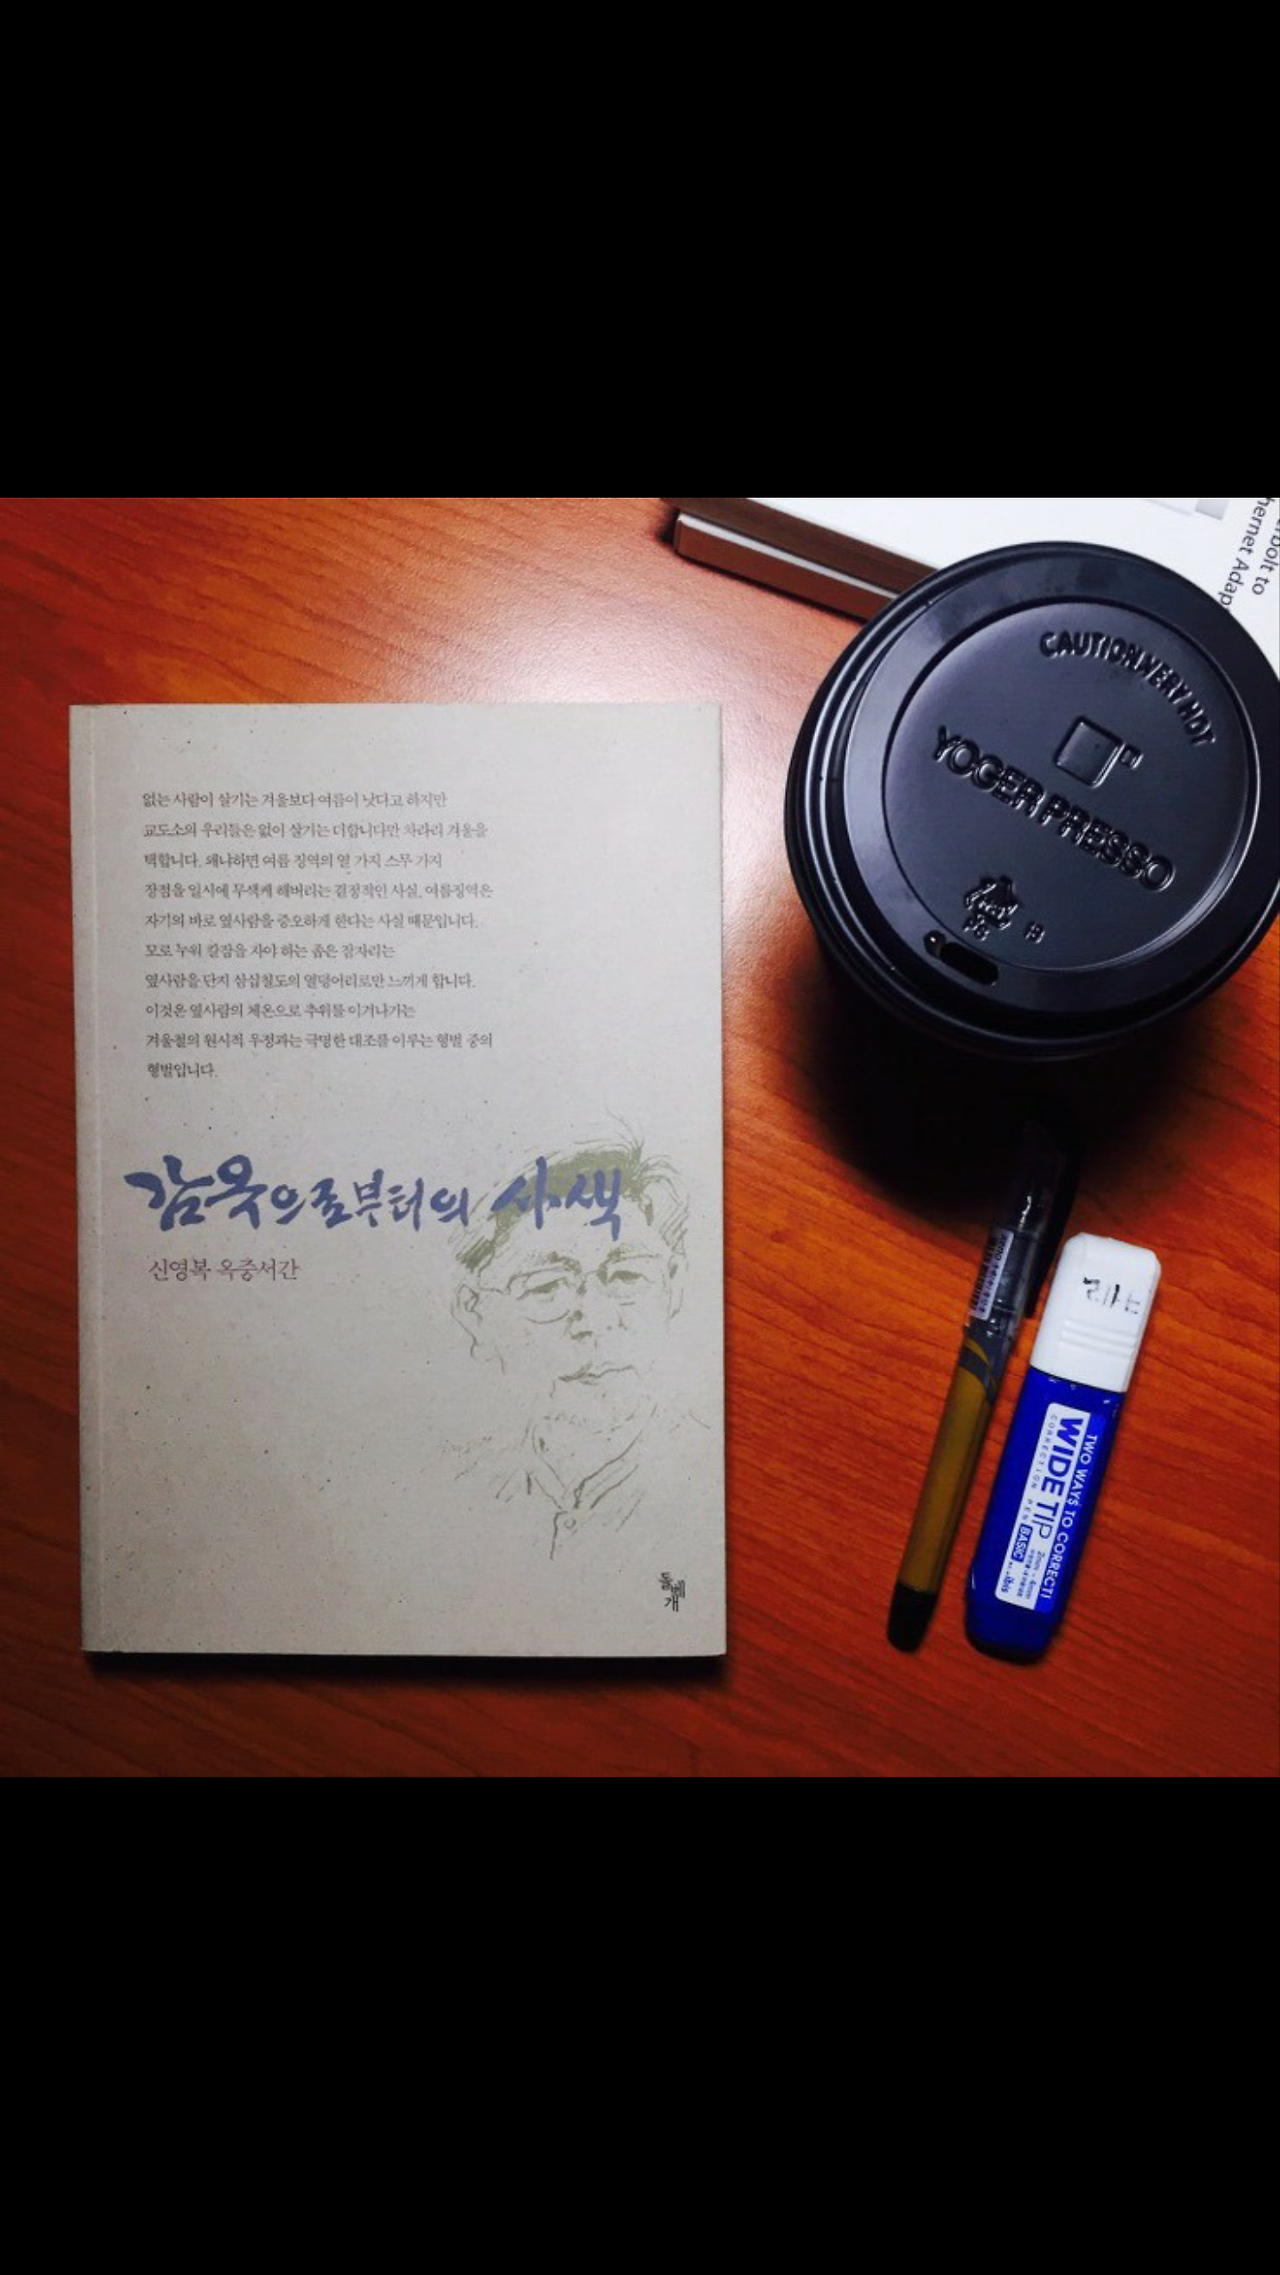 없는 사람이 살기는 겨울보다 여름이 낫다고 하지만
교도소의 우리들은 없이 살기는 더합니다만 차라리 겨울을
택합니다. 왜냐하면 여름 징역의 열 가지 스무 가지
장점을 일시에 무색케 해버리는 결정적인 사실, 여름징역은
자기의 바로 옆사람을 증오하게 한다는 사실 때문입니다.
모로 누워 칼잠을 자야 하는 좁은 잠자리는
옆사람을 단지 삼십칠도의 열덩어리로만 느끼게 합니다.
이것은 옆사람의 체온으로 추위를 이겨나가는
겨울철의 원시적 우정과는 극명한 대조를 이루는 형벌 중의
형벌입니다.
감옥으로부터의 사색
신영복 옥중서간
돌베개
bolt to
hernet Adap
CAUTION VERY HOT
YOGER PRESSO
PS
TWO WAYS TO CORRECT!
WIDE TIP
CORRECTION PEN BASIC